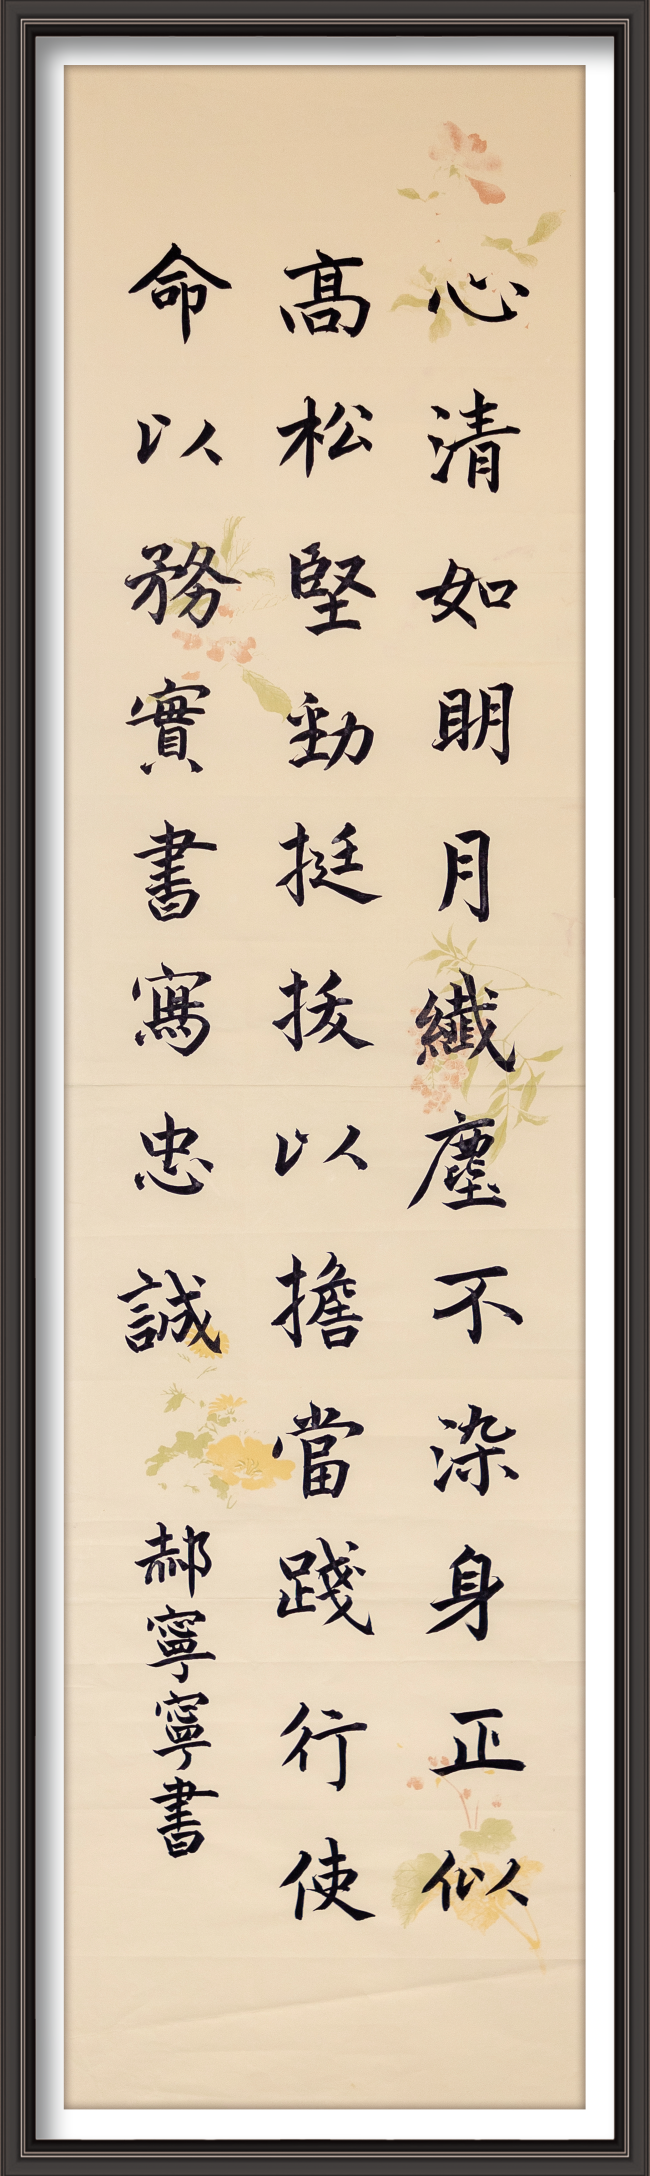 心清如明月纖塵不染身正似
高松堅勁挺拔以擔當踐行使
命以務實書寫忠誠
郝寧寧書